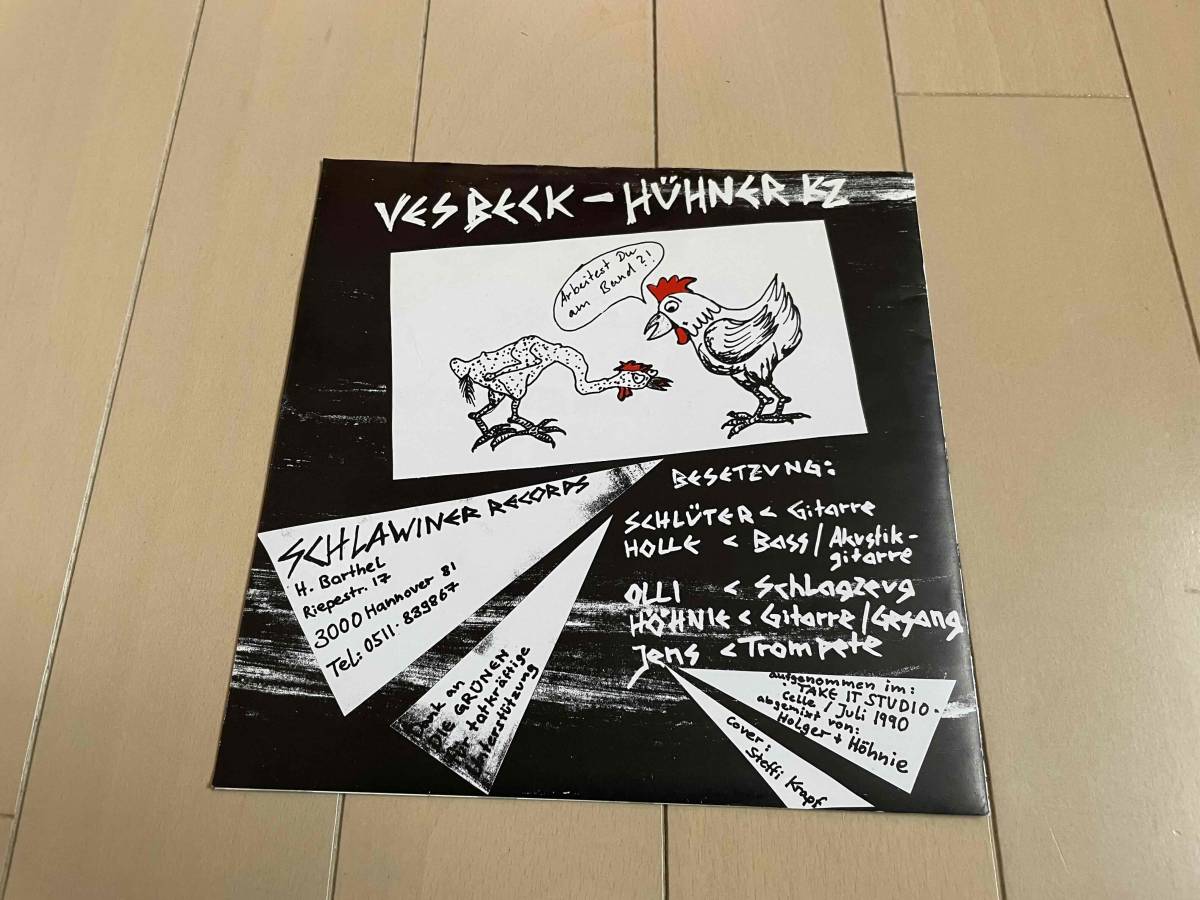 VESBECK – HÜHNER KZ
Arbeitest Du
am Band?!
SCHLAWINER RECORDS
H. Barthel
Riepestr. 17
3000 Hannover 81
Tel: 0511 - 839867
BESETZUNG:
SCHLÜTER < Gitarre
HOLLE < Bass / Akustik-
gitarre
OLLI < Schlagzeug
HÖHNIE < Gitarre / Gesang
Jens < Trompete
an
DIE GRÜNEN
tatkräftige
aufgenommen im:
TAKE IT STUDIO -
Celle / Juli 1990
abgemixt von:
Holger + Höhnie
Cover:
Steffi Krapf